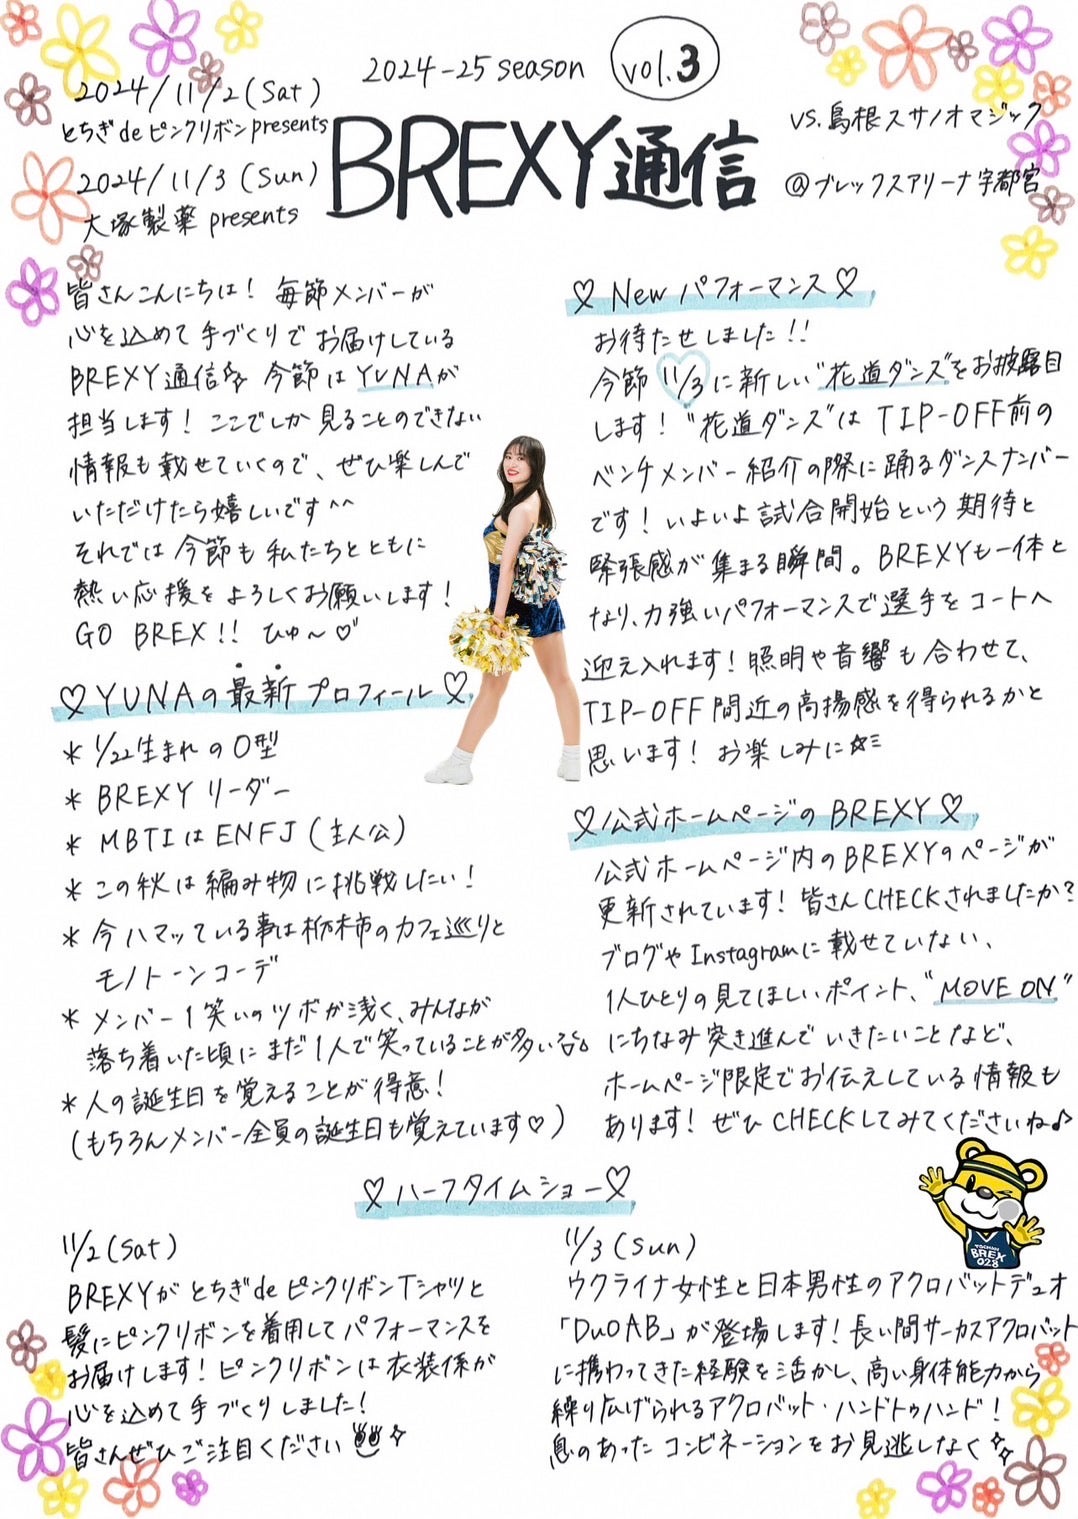 2024-25 season
vol.3
2024/11/2(Sat)
とちぎdeピンクリボンpresents
2024/11/3(Sun)
大塚製薬 presents
BREXY通信
VS.島根スサノオマジック
@ブレックスアリーナ宇都宮
皆さんこんにちは！毎節メンバーが
心を込めて手づくりでお届けしている
BREXY通信☆ 今節はYUNAが
担当します！ここでしか見ることのできない
情報も載せていくので、ぜひ楽しんで
いただけたら嬉しいです^^
それでは今節も私たちとともに
熱い応援をよろしくお願いします！
GO BREX!! ひゅ〜♡
♡YUNAの最新プロフィール♡
＊1/22生まれのO型
＊BREXYリーダー
＊MBTIはENFJ(主人公)
＊この秋は編み物に挑戦したい！
＊今ハマっている事は栃木市のカフェ巡りと
モノトーンコーデ
＊メンバー1笑いのツボが浅く、みんなが
落ち着いた頃にまだ1人で笑っていることが多い
＊人の誕生日を覚えることが得意！
(もちろんメンバー全員の誕生日も覚えています♡)
♡Newパフォーマンス♡
お待たせしました！！
今節11/3に新しい"花道ダンス"をお披露目
します！"花道ダンス"はTIP-OFF前の
ベンチメンバー紹介の際に踊るダンスナンバー
です！いよいよ試合開始という期待と
緊張感が集まる瞬間。BREXYも一体と
なり、力強いパフォーマンスで選手をコートへ
迎え入れます！照明や音響も合わせて、
TIP-OFF間近の高揚感を得られるかと
思います！お楽しみに☆
♡公式ホームページのBREXY♡
公式ホームページ内のBREXYのページが
更新されています！皆さんCHECKされましたか？
ブログやInstagramに載せていない、
1人ひとりの見てほしいポイント、"MOVE ON"
にちなみ突き進んでいきたいことなど、
ホームページ限定でお伝えしている情報も
あります！ぜひCHECKしてみてくださいね♪
TOCHIGI
BREX
028
♡ハーフタイムショー♡
11/2(Sat)
BREXYがとちぎdeピンクリボンTシャツと
髪にピンクリボンを着用してパフォーマンスを
お届けします！ピンクリボンは衣装係が
心を込めて手づくりしました！
皆さんぜひご注目ください
11/3(Sun)
ウクライナ女性と日本男性のアクロバットデュオ
「DuoAB」が登場します！長い間サーカスアクロバット
に携わってきた経験を活かし、高い身体能力から
繰り広げられるアクロバット・ハンドトゥハンド！
息のあったコンビネーションをお見逃しなく